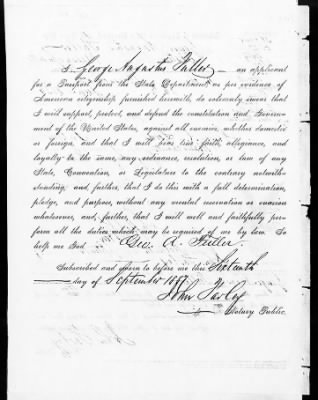 I, George Augustus Fuller — an applicant
for a Passport from the State Department, as per evidence of
American citizenship furnished herewith, do solemnly swear that
I will support, protect, and defend the constitution and Govern-
ment of the United States, against all enemies, whether domestic
or foreign, and that I will bear true faith, allegiance, and
loyalty to the same, any ordinance, resolution, or law of any
State, Convention, or Legislature to the contrary notwith-
standing; and, further, that I do this with a full determination,
pledge, and purpose, without any mental reservation or evasion
whatsoever, and, further, that I will well and faithfully per-
form all the duties which may be required of me by law. So
help me God.
Geo. A. Fuller.
Subscribed and sworn to before me this Sixteenth
— day of September 1877.
John
Notary Public.